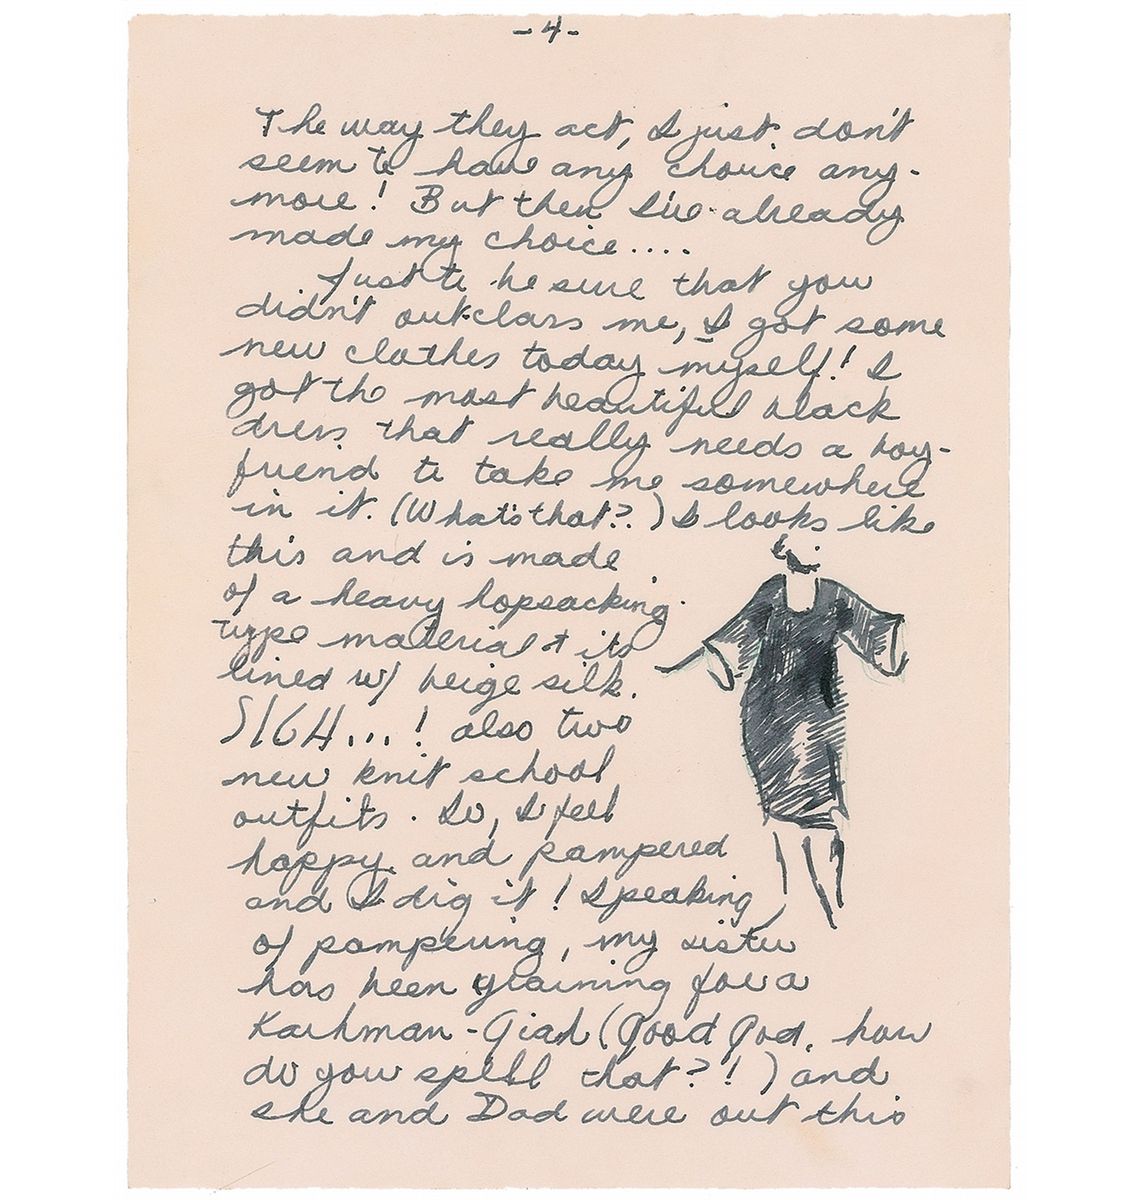 -4-
The way they act, I just don't
seem to have any choice any-
more! But then I've already
made my choice....
Just to be sure that you
didn't outclass me, I got some
new clothes today myself! I
got the most beautiful black
dress that really needs a boy-
friend to take me somewhere
in it. (What's that?) I looks like
this and is made
of a heavy hopsacking
type material & its
lined w/ beige silk.
SIGH...! also two
new knit school
outfits. So, I feel
happy and pampered
and I dig it! Speaking
of pampering, my sister
has been yraining for a
Karhman-Giah (Good God, how
do you spell that?!) and
she and Dad were out this